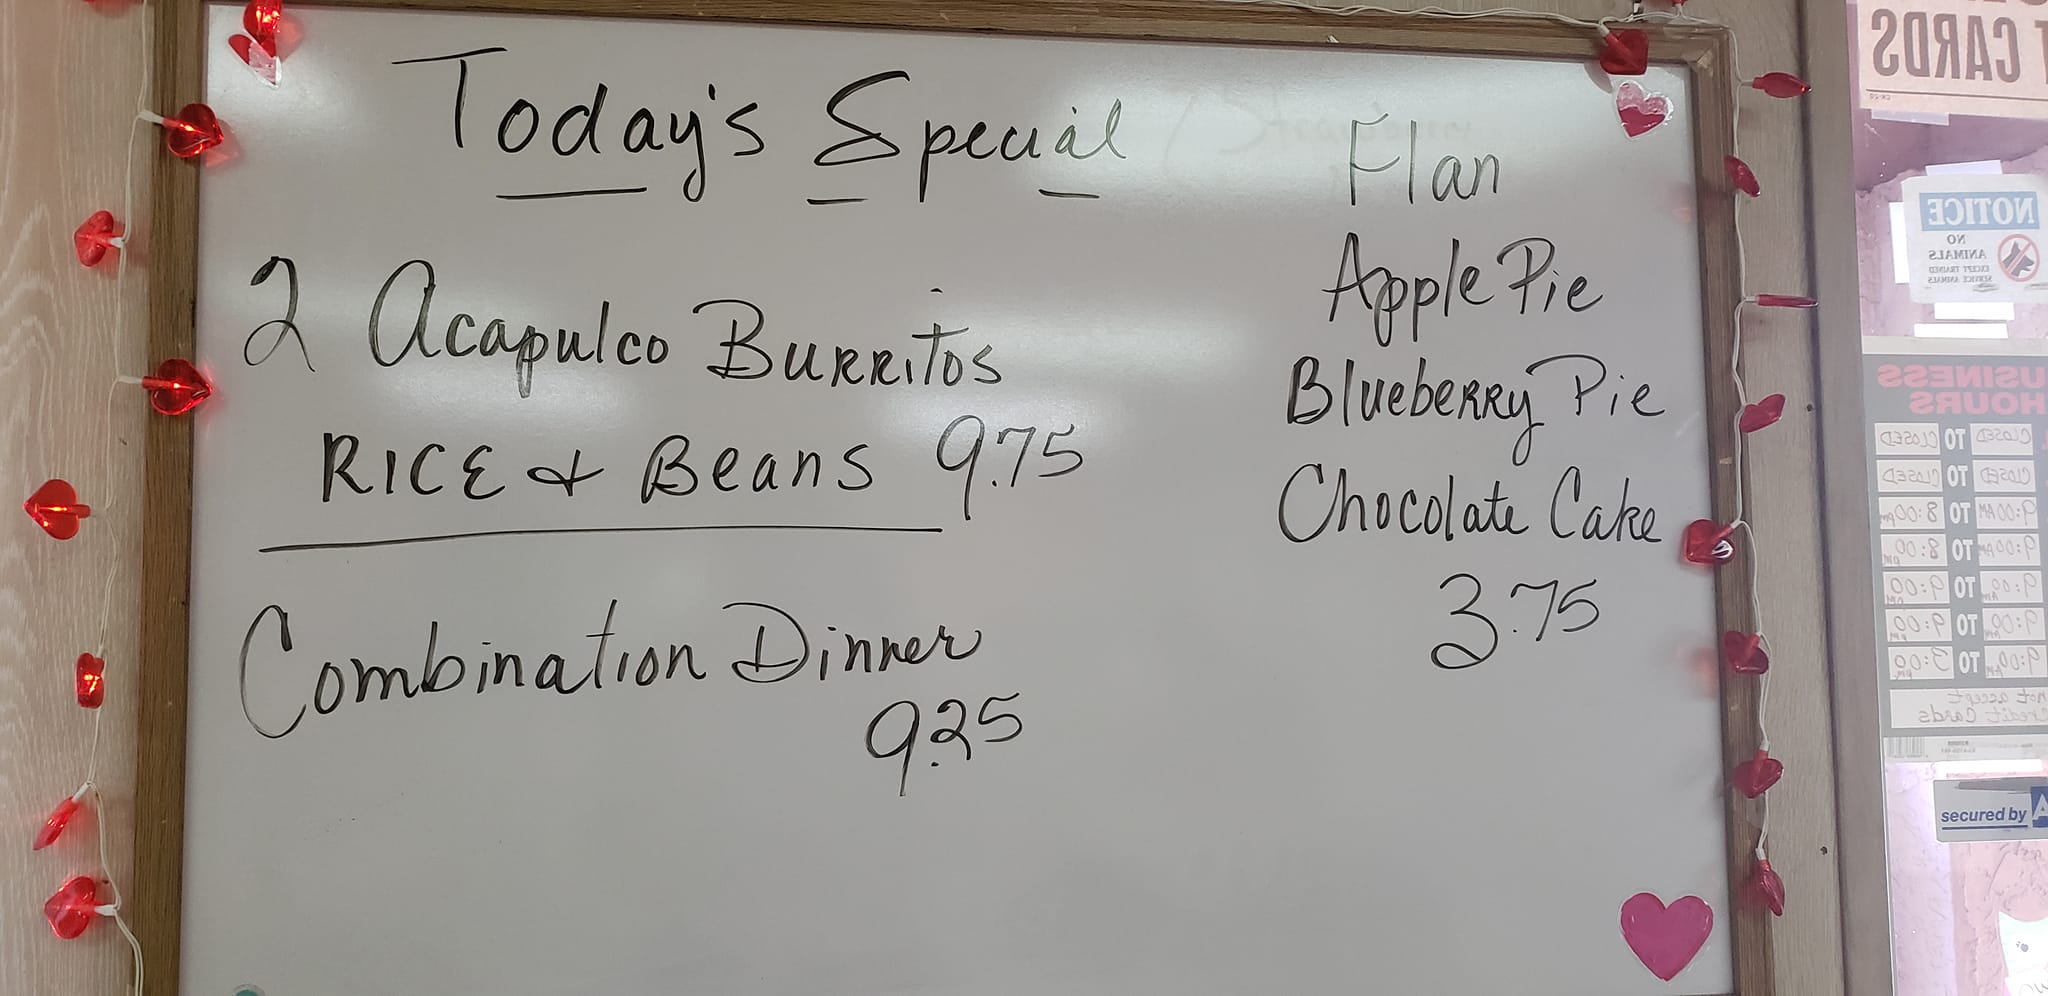 Today's Special
2 Acapulco Burritos
RICE & Beans 9.75
Combination Dinner
9.25
Flan
Apple Pie
Blueberry Pie
Chocolate Cake
3.75
T CARDS
NOTICE
NO
ANIMALS
EXCEPT TRAINED
SERVICE ANIMALS
USINESS
HOURS
CLOSED TO CLOSED
CLOSED TO CLOSED
9:00AM TO 8:00pm
9:00AM TO 8:00 pm
9:00 AM TO 9:00 PM
9:00 AM TO 9:00 pm
9:00 AM TO 3:00 pm
not accept
credit cards
secured by A